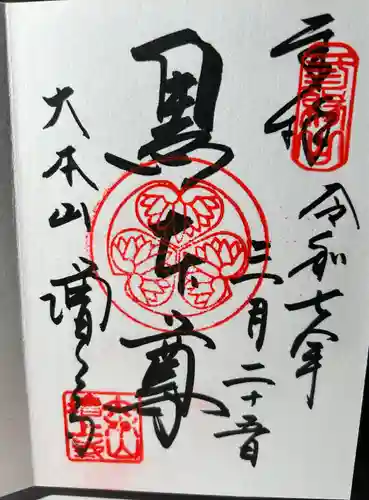 令和七年
三月二十五日
黒本尊
大本山 増上寺